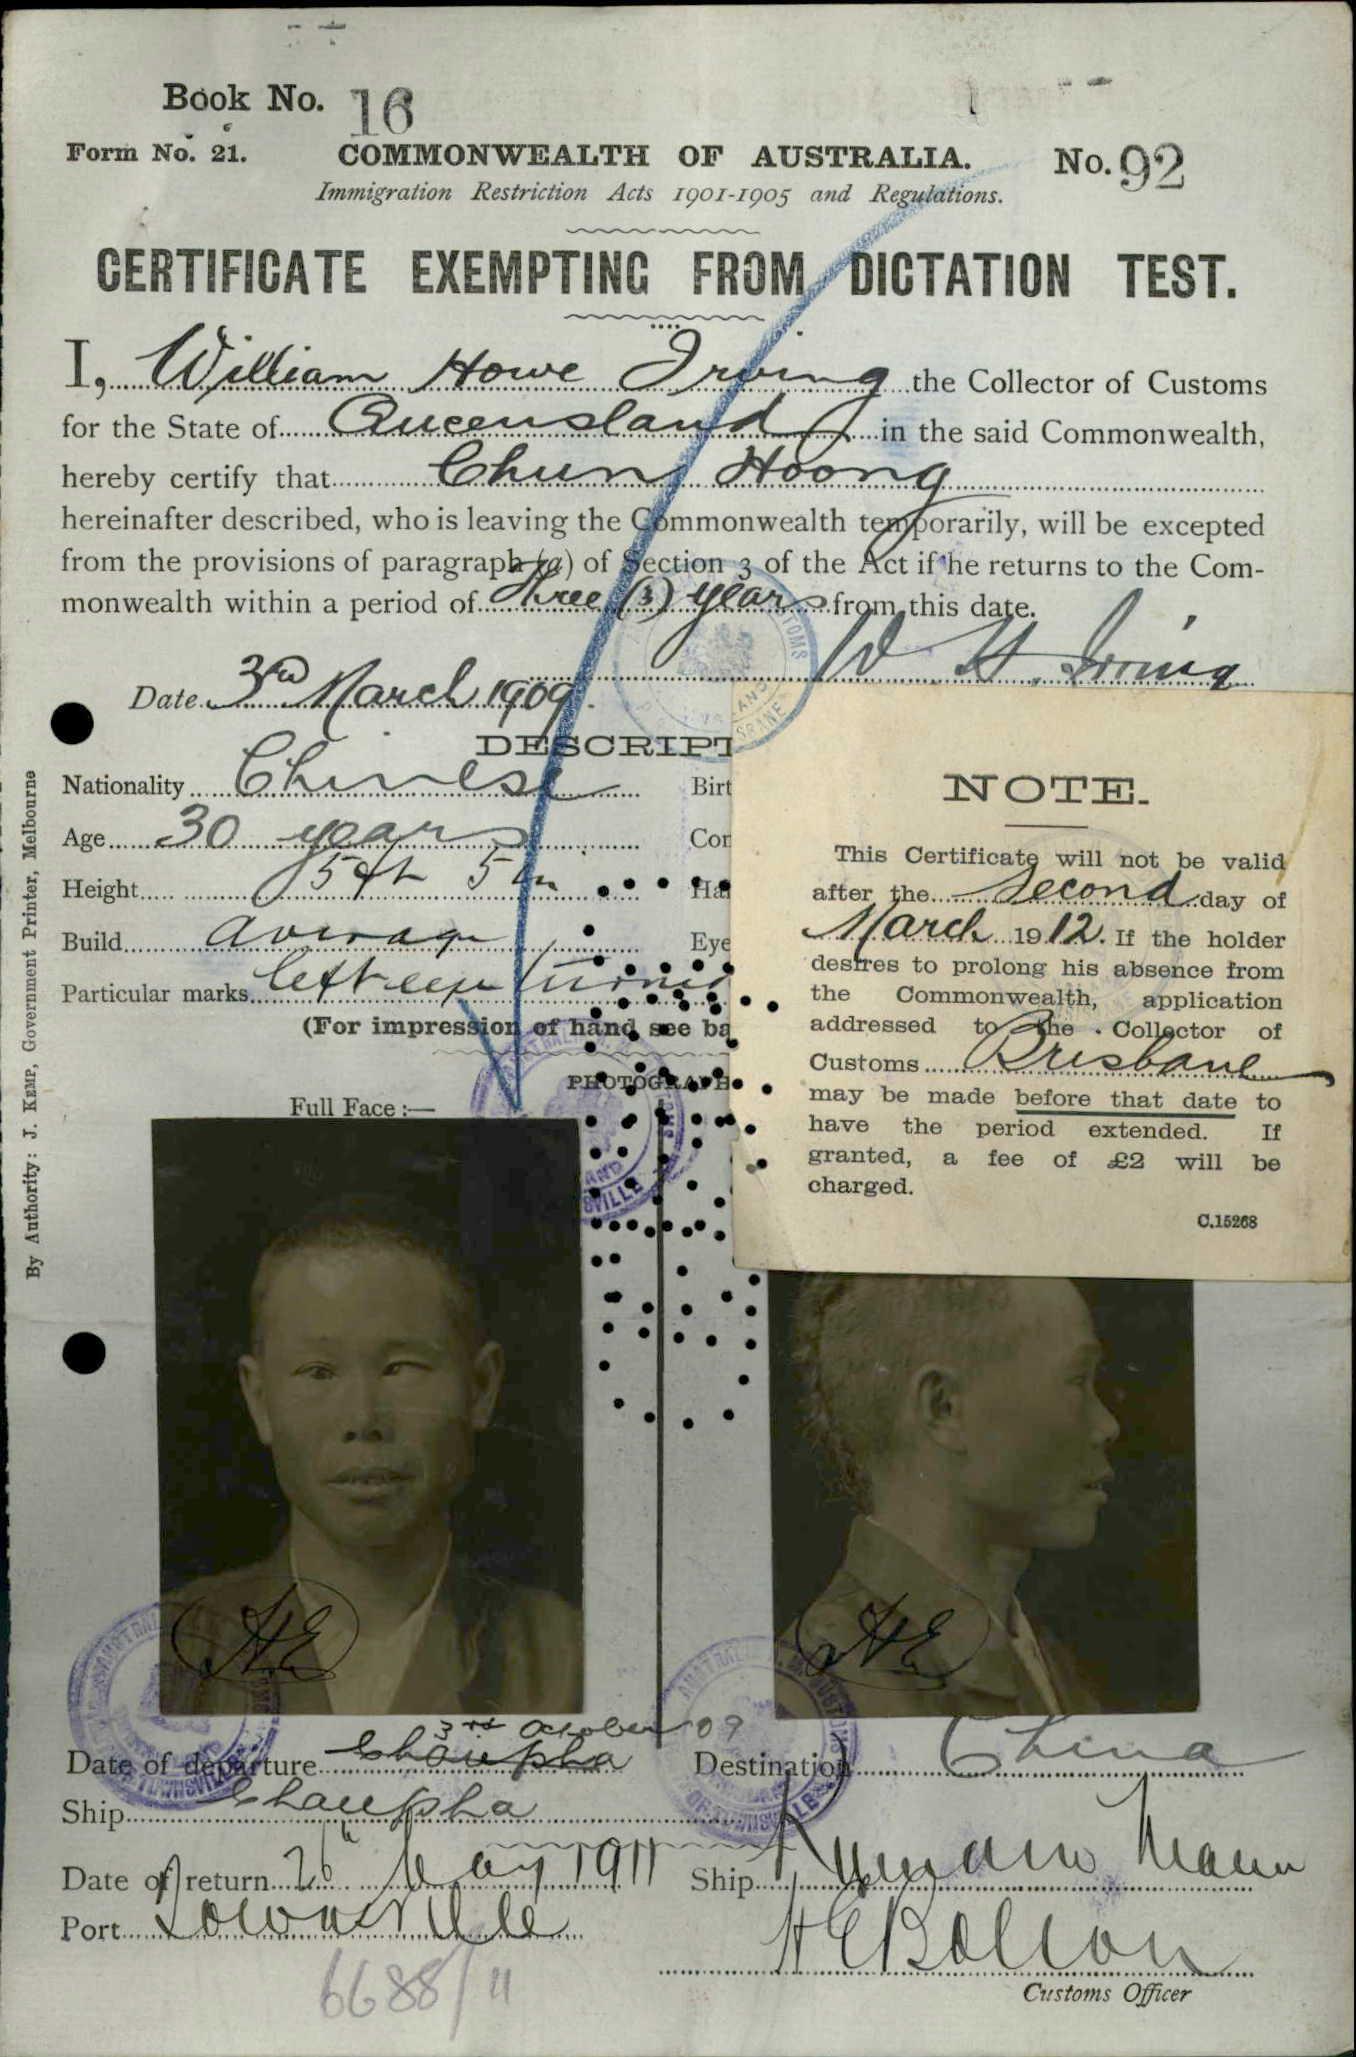 Book No. 16
Form No. 21. COMMONWEALTH OF AUSTRALIA. No. 92
Immigration Restriction Acts 1901-1905 and Regulations.
CERTIFICATE EXEMPTING FROM DICTATION TEST.
I, William Howe Irving the Collector of Customs
for the State of Queensland in the said Commonwealth,
hereby certify that Chun Hoong
hereinafter described, who is leaving the Commonwealth temporarily, will be excepted
from the provisions of paragraph (a) of Section 3 of the Act if he returns to the Com-
monwealth within a period of three (3) years from this date.
W. H. Irving
Date 3rd March 1909.
DESCRIPT
Nationality Chinese Birt
Age 30 years Com
Height 5 ft 5 in Hai
Build average Eye
Particular marks left eye turned
(For impression of hand see ba
PHOTOGRAPH
Full Face:—
NOTE.
This Certificate will not be valid
after the second day of
March 1912. If the holder
desires to prolong his absence from
the Commonwealth, application
addressed to the Collector of
Customs Brisbane
may be made before that date to
have the period extended. If
granted, a fee of £2 will be
charged.
C.15268
By Authority: J. KEMP, Government Printer, Melbourne
HE
HE
3rd October 09
Date of departure Destination China
Ship
Date of return 26th May 1911 Ship Kumano Maru
Port Townsville
H E Bolton
Customs Officer
6688/11